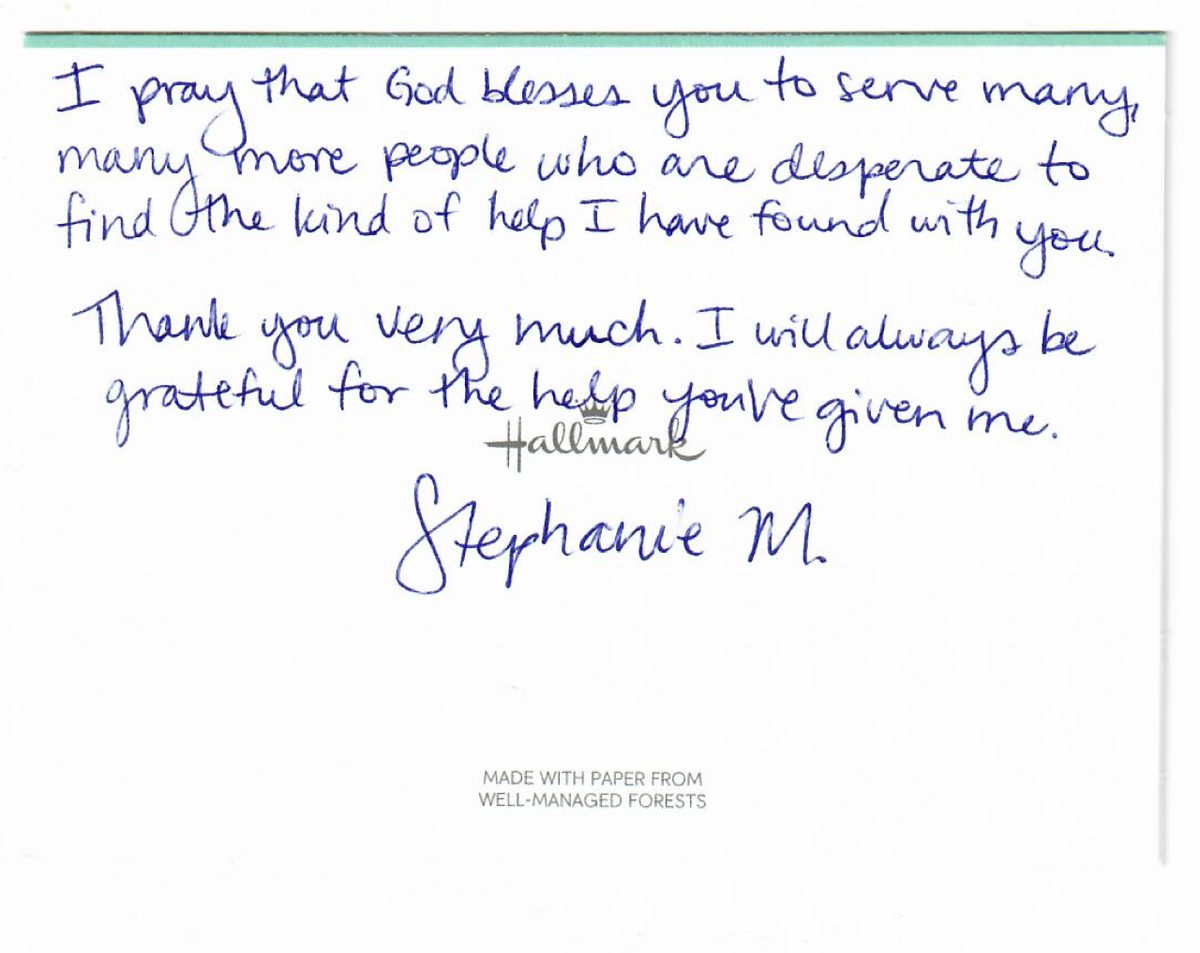 I pray that God blesses you to serve many,
many more people who are desperate to
find the kind of help I have found with you.
Thank you very much. I will always be
grateful for the help you've given me.
Hallmark
Stephanie M.
MADE WITH PAPER FROM
WELL-MANAGED FORESTS